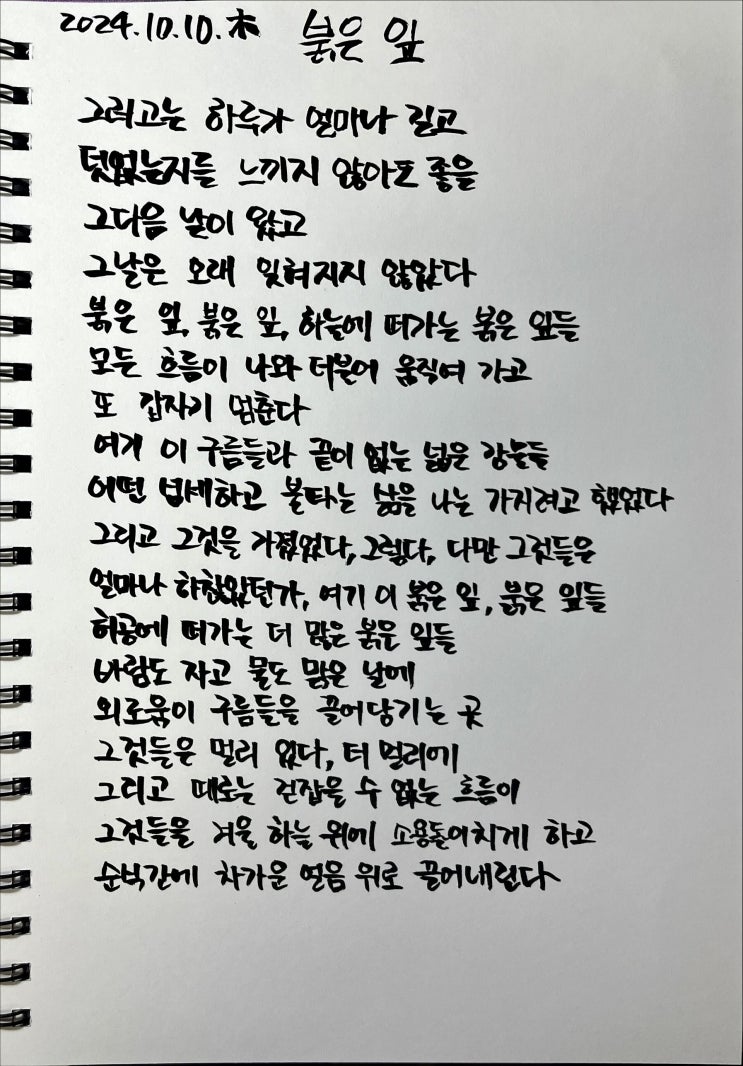 2024.10.10.木 붉은 잎
그리고는 하루가 얼마나 길고
덧없는지를 느끼지 않아도 좋을
그다음 날이 왔고
그날은 오래 잊혀지지 않았다
붉은 잎, 붉은 잎, 하늘에 떠가는 붉은 잎들
모든 흐름이 나와 더불어 움직여 가고
또 갑자기 멈춘다
여기 이 구름들과 끝이 없는 넓은 강물들
어떤 섬세하고 불타는 삶을 나는 가지려고 했었다
그리고 그것을 가졌었다, 그렇다, 다만 그것들은
얼마나 하찮았던가, 여기 이 붉은 잎, 붉은 잎들
허공에 떠가는 더 많은 붉은 잎들
바람도 자고 물도 맑은 날에
외로움이 구름들을 끌어당기는 곳
그것들은 멀리 있다, 더 멀리에
그리고 때로는 걷잡을 수 없는 흐름이
그것들을 겨울 하늘 위에 소용돌이치게 하고
순식간에 차가운 얼음 위로 끌어내린다